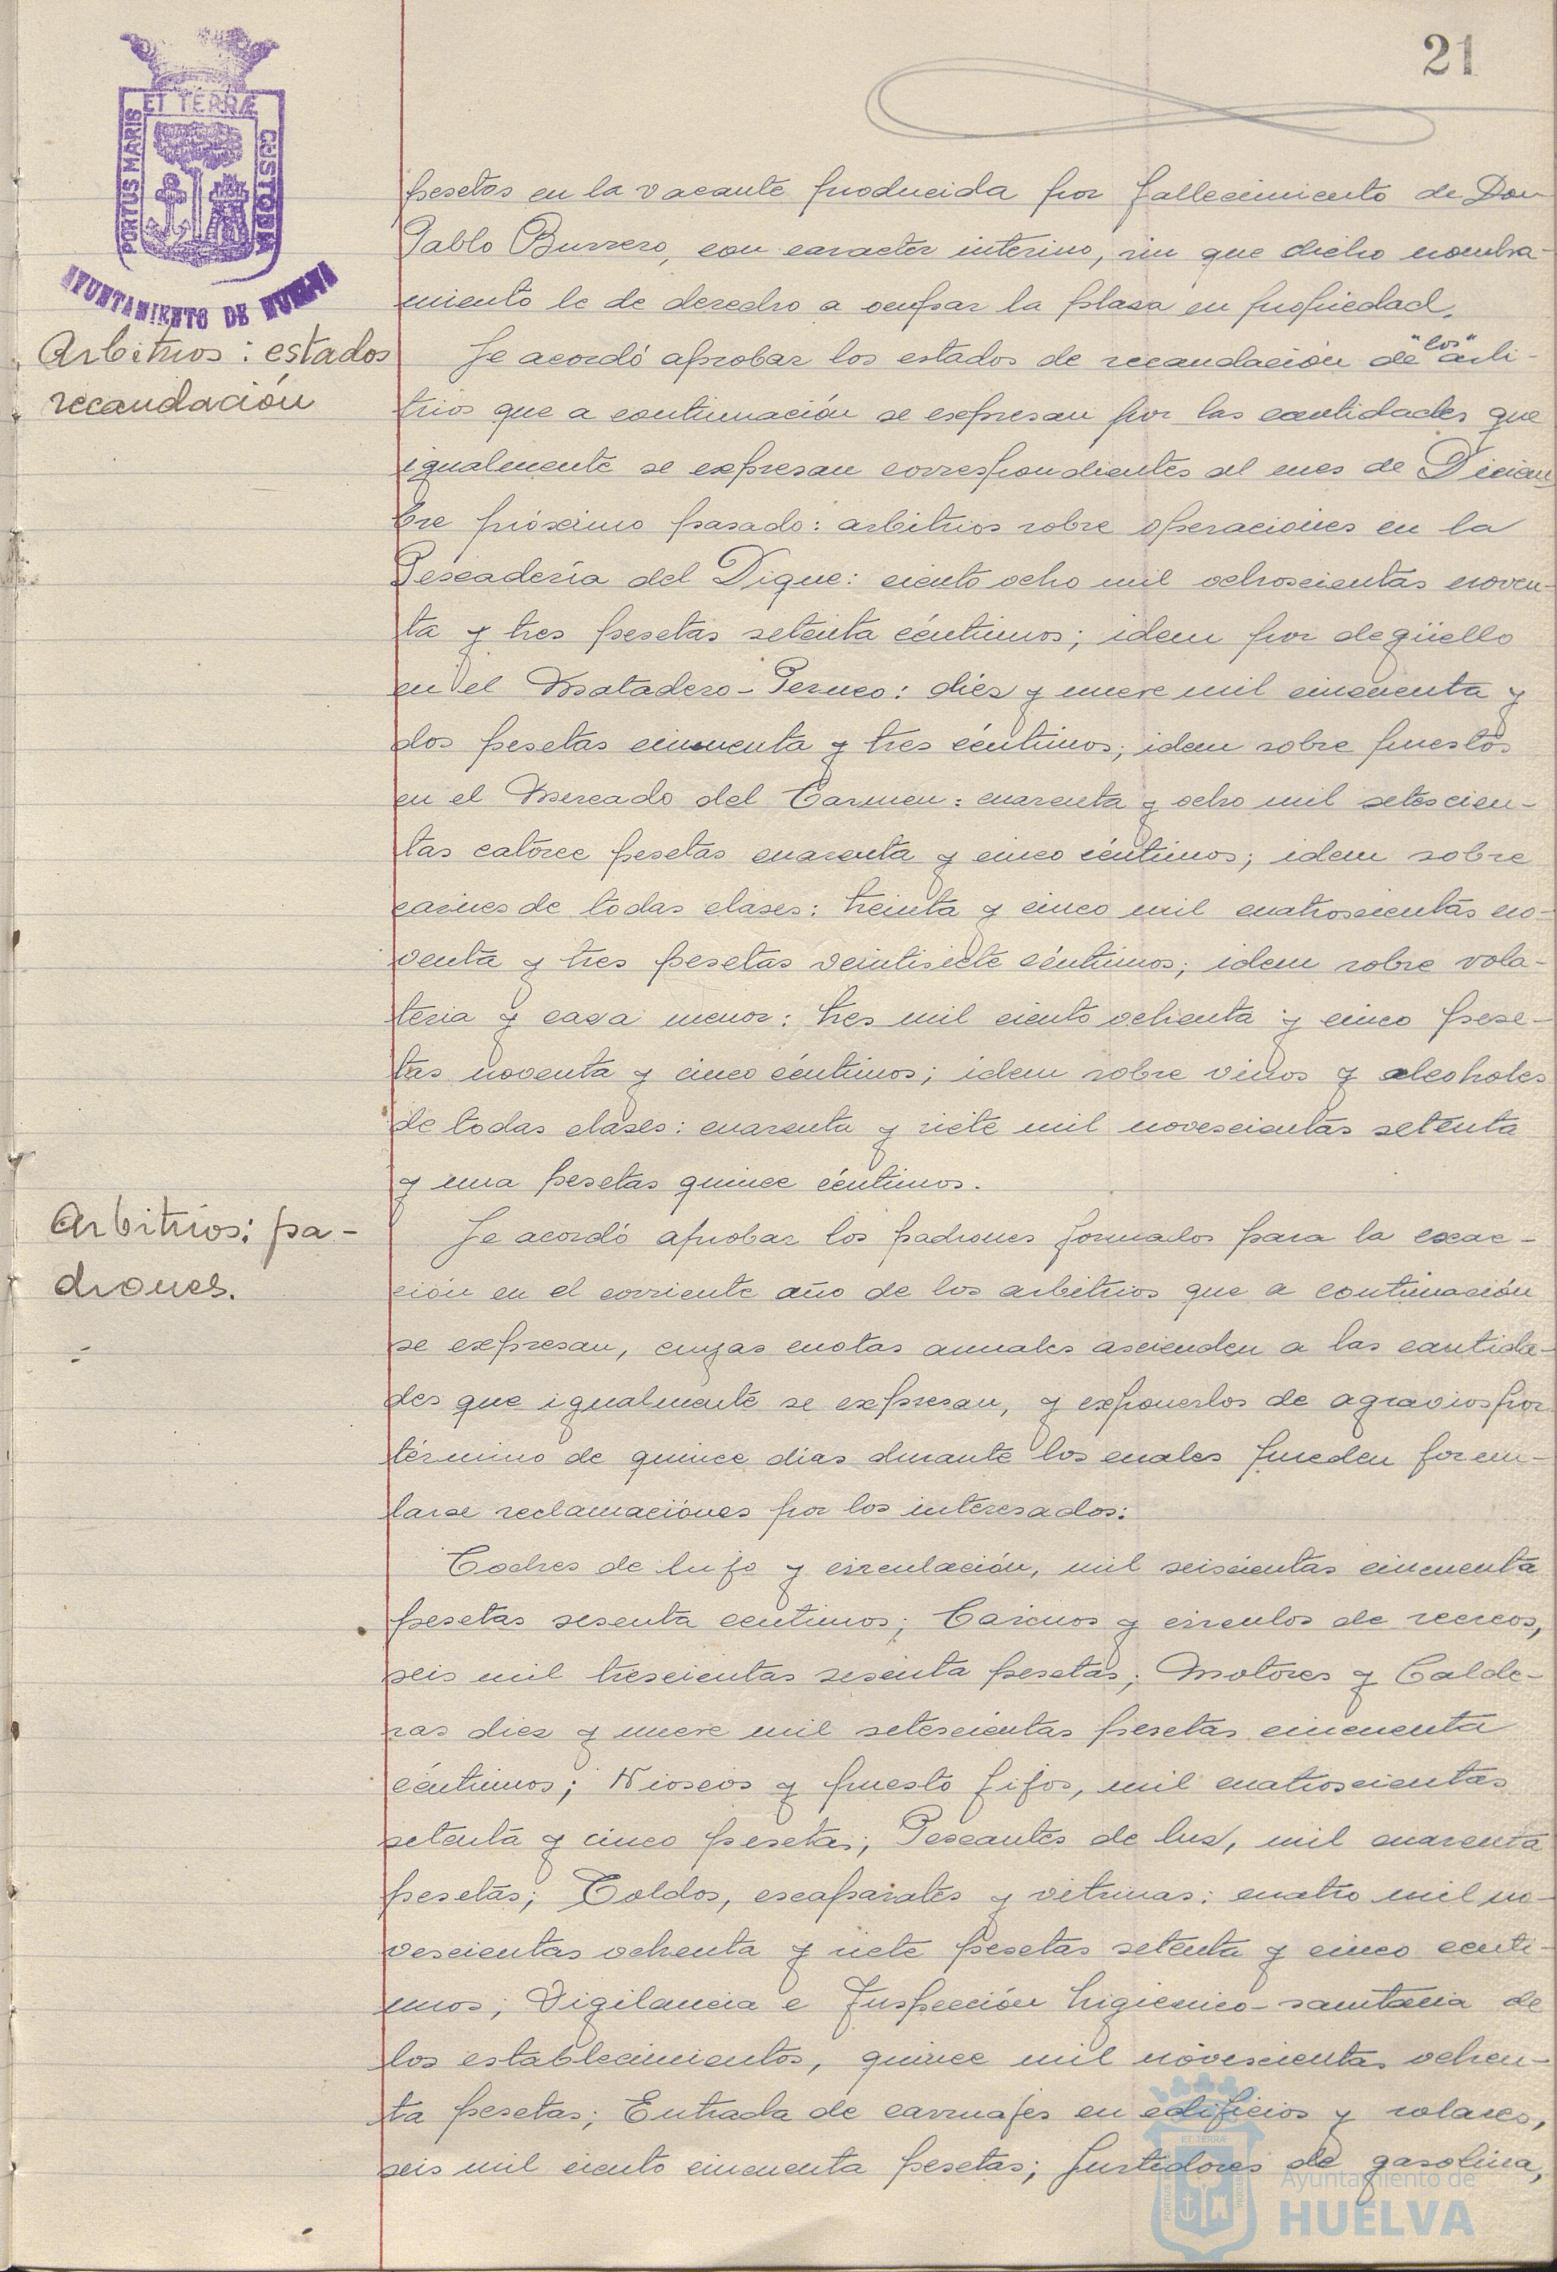 21
ET TERRÆ
PORTUS MARIS
CUSTODIA
AYUNTAMIENTO DE HUELVA
pesetas en la vacante producida por fallecimiento de Don
Pablo Burrero, con caracter interino, sin que dicho nombra-
miento le de derecho a ocupar la plaza en propiedad.
Arbitrios: estados
recaudación
Se acordó aprobar los estados de recaudación de "los" arbi-
trios que a continuación se expresan por las cantidades que
igualmente se expresan correspondientes al mes de Diciem
bre próximo pasado: arbitrios sobre operaciones en la
Pescadería del Dique: ciento ocho mil ochoscientas noven-
ta y tres pesetas setenta céntimos; idem por degüello
en el Matadero-Perneo: diéz y nueve mil cincuenta y
dos pesetas cincuenta y tres céntimos; idem sobre puestos
en el Mercado del Carmen: cuarenta y ocho mil setescien-
tas catorce pesetas cuarenta y cinco céntimos; idem sobre
carnes de todas clases: treinta y cinco mil cuatroscientas no-
venta y tres pesetas veintisiete céntimos; idem sobre vola-
teria y caza menor: tres mil ciento ochenta y cinco pese-
tas noventa y cinco céntimos; idem sobre vinos y alcoholes
de todas clases: cuarenta y siete mil novescientas setenta
y una pesetas quince céntimos.
Arbitrios: pa-
drones.
Se acordó aprobar los padrones formados para la exac-
ción en el corriente año de los arbitrios que a continuación
se expresan, cuyas cuotas anuales ascienden a las cantida-
des que igualmente se expresan, y exponerlos de agravios por
término de quince días durante los cuales pueden formu-
larse reclamaciónes por los interesados:
Coches de lujo y circulación, mil seiscientas cincuenta
pesetas sesenta centimos; Casinos y circulos de recreos,
seis mil trescientas sesenta pesetas; Motores y Calde-
ras diez y nueve mil setescientas pesetas cincuenta
céntimos; Kioscos y puesto fijos, mil cuatroscientas
setenta y cinco pesetas; Pescantes de luz, mil cuarenta
pesetas; Toldos, escaparates y vitrinas: cuatro mil no-
vescientas ochenta y siete pesetas setenta y cinco centi-
mos; Vigilancia e Inspección higienico-sanitaria de
los establecimientos, quince mil novescientas ochen-
ta pesetas; Entrada de carruajes en edificios y solares,
seis mil ciento cincuenta pesetas; Surtidores de gasolina,
Ayuntamiento de
HUELVA